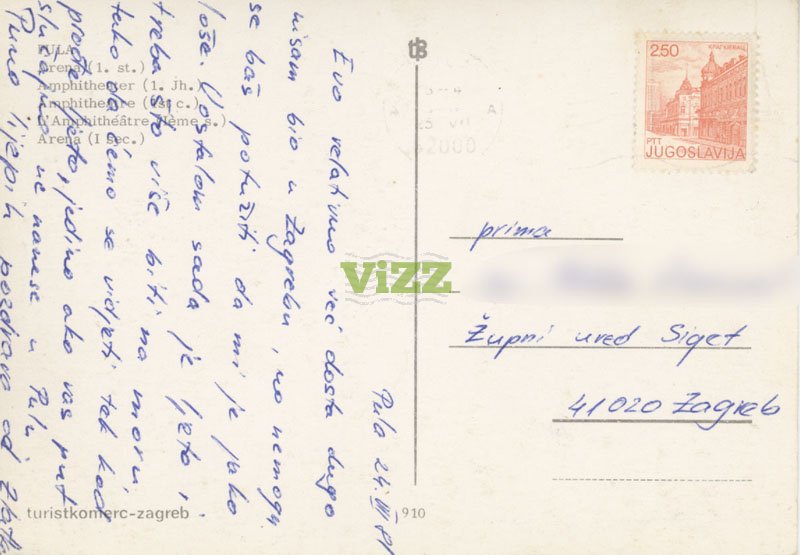 PULA
Arena (1. st.)
Amphitheater (1. Jh.)
Amphitheatre (1st c.)
L'Amphithéâtre (Ième s.)
Arena (I sec.)
Pula 24. VII 81
Evo relativno već dosta dugo
nisam bio u Zagrebu, no nemogu
se baš potužiti da mi je jako
loše. Uostalom sada je ljeto, i
treba što više biti na moru
tako da ćemo se vidjeti tek kad
prođe ljeto, jedino ako vas put
slučajno ne nanese u Pulu.
Puno lijepih pozdrava od
turistkomerc-zagreb
910
tB
2.50
КРАГУЈЕВАЦ
PTT
JUGOSLAVIJA
A
25 VII
52000
prima
Župni ured Siget
41020 Zagreb
ViZZ